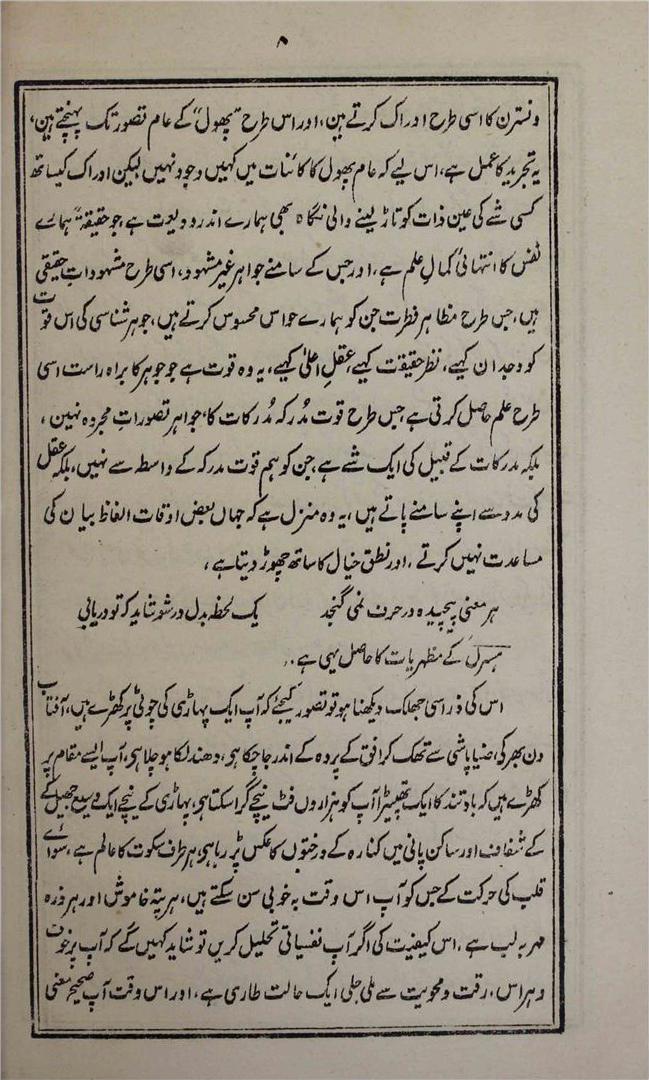 ۸
ونسترن کا اسی طرح ادراک کرتے ہین، اور اس طرح "پھول" کے عام تصور تک پہنچتے ہین،
یہ تجرید کا عمل ہے، اس لیے کہ عام پھول کا کائنات میں کہیں وجود نہیں لیکن ادراک کیساتھ
کسی شے کی عین ذات کو تاڑ لینے والی نگاہ بھی ہمارے اندر ودیعت ہے، جو حقیقۃً ہمارے
نفس کا انتہائی کمالِ علم ہے، اور جس کے سامنے جواہر غیر مشہود، اسی طرح مشہوداتِ حقیقی
ہیں، جس طرح مظاہر فطرت جن کو ہمارے حواس محسوس کرتے ہیں، جوہر شناسی کی اس قوت
کو وجدان کہیے، نظرِ حقیقت کہیے، عقلِ اعلیٰ کہیے، یہ وہ قوت ہے جو جوہر کا براہ راست اسی
طرح علم حاصل کرتی ہے جس طرح قوت مُدرکہ مُدرکات کا، جواہر تصوراتِ مجردہ نہین،
بلکہ مدرکات کے قبیل کی ایک شے ہے، جن کو ہم قوت مدرکہ کے واسطہ سے نہیں، بلکہ عقل
کی مدد سے اپنے سامنے پاتے ہیں، یہ وہ منزل ہے کہ جہاں بعض اوقات الفاظ بیان کی
مساعدت نہیں کرتے، اور نطق خیال کا ساتھ چھوڑ دیتا ہے،
ہر معنی پیچیدہ در حرف نمی گنجد یک لحظہ بدل در شو شاید کہ تو دریابی
ہسرل کے مظہریات کا حاصل یہی ہے،
اس کی ذراسی جھلک دیکھنا ہو تو تصور کیجئے کہ آپ ایک پہاڑی کی چوٹی پر کھڑے ہیں، آفتاب
دن بھر کی ضیا پاشی سے تھک کر افق کے پردہ کے اندر جا چکا ہی، دھندلکا ہو چلا ہی، آپ ایسے مقام پر
کھڑے ہیں کہ باد تند کا ایک تھپیڑا آپ کو ہزاروں فٹ نیچے گرا سکتا ہی، پہاڑی کے نیچے ایک وسیع جھیل کے
کے شفاف اور ساکن پانی میں کنارہ کے درختوں کا عکس پڑ رہا ہی، ہر طرف سکوت کا عالم ہے، سوائے
قلب کی حرکت کے جس کو آپ اس وقت بہ خوبی سن سکتے ہیں، ہر پتہ خاموش اور ہر ذرہ
مہر بہ لب ہے، اس کیفیت کی اگر آپ نفسیاتی تحلیل کریں تو شاید کہیں گے کہ آپ پر خوف
وہراس، رقت ومحویت سے ملی جلی ایک حالت طاری ہے، اور اس وقت آپ صحیح معنی